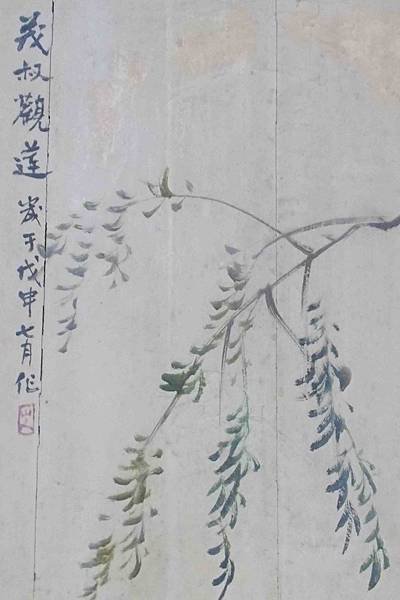 茂叔觀蓮 歲于戊申七月作